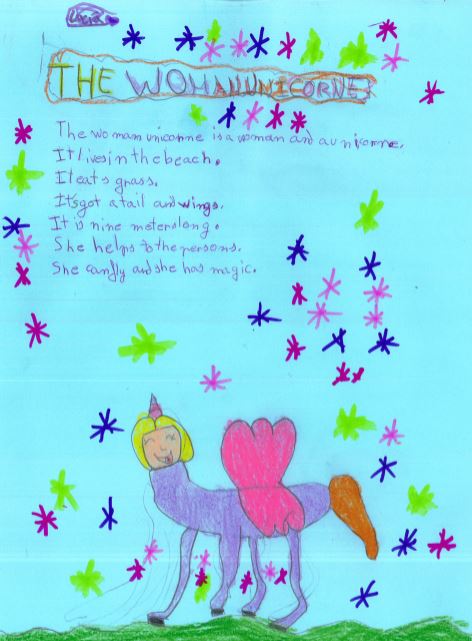 THE WOMANUNICORNE
The woman unicorne is a woman and a unicorne.
It lives in the beach.
It eats grass.
It's got a tail and wings.
It is nine meters long.
She helps to the persons.
She can fly and she has magic.